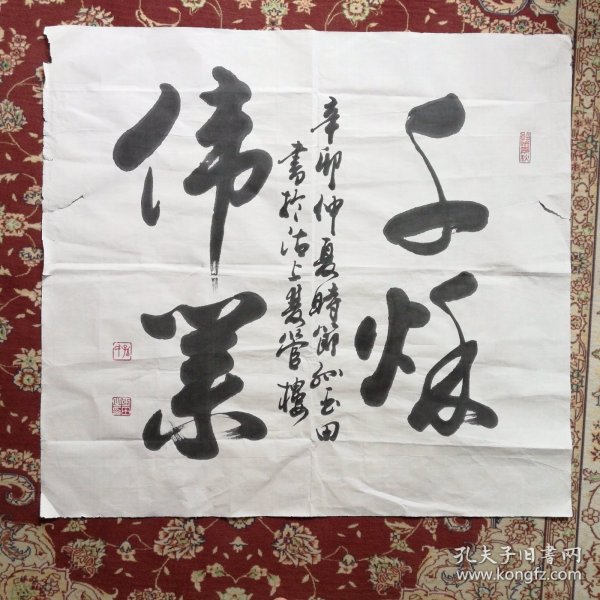 千秋
偉業
辛卯仲夏時節孫玉田
書於沽上慧管樓
孔夫子旧书网
www.kongfz.com